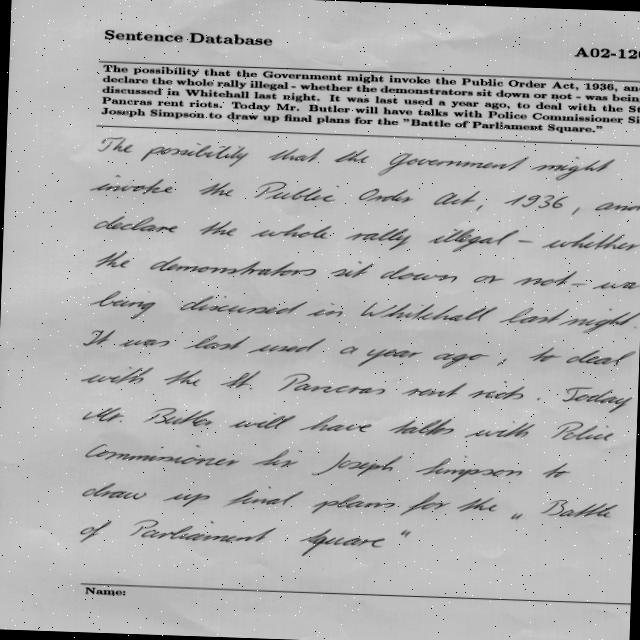 Sentence Database
A02-12
The possibility that the Government might invoke the Public Order Act, 1936, an
declare the whole rally illegal - whether the demonstrators sit down or not - was bein
discussed in Whitehall last night. It was last used a year ago, to deal with the St
Pancras rent riots. Today Mr. Butler will have talks with Police Commissioner Si
Joseph Simpson to draw up final plans for the "Battle of Parliament Square."
The possibility that the Government might
invoke the Public Order Act, 1936, and
declare the whole rally illegal - whether
the demonstrators sit down or not - wa
being discussed in Whitehall last night
It was last used a year ago, to deal
with the St. Pancras rent riots. Today
Mr. Butler will have talks with Police
Commissioner Sir Joseph Simpson to
draw up final plans for the „ Battle
of Parliament Square "
Name: